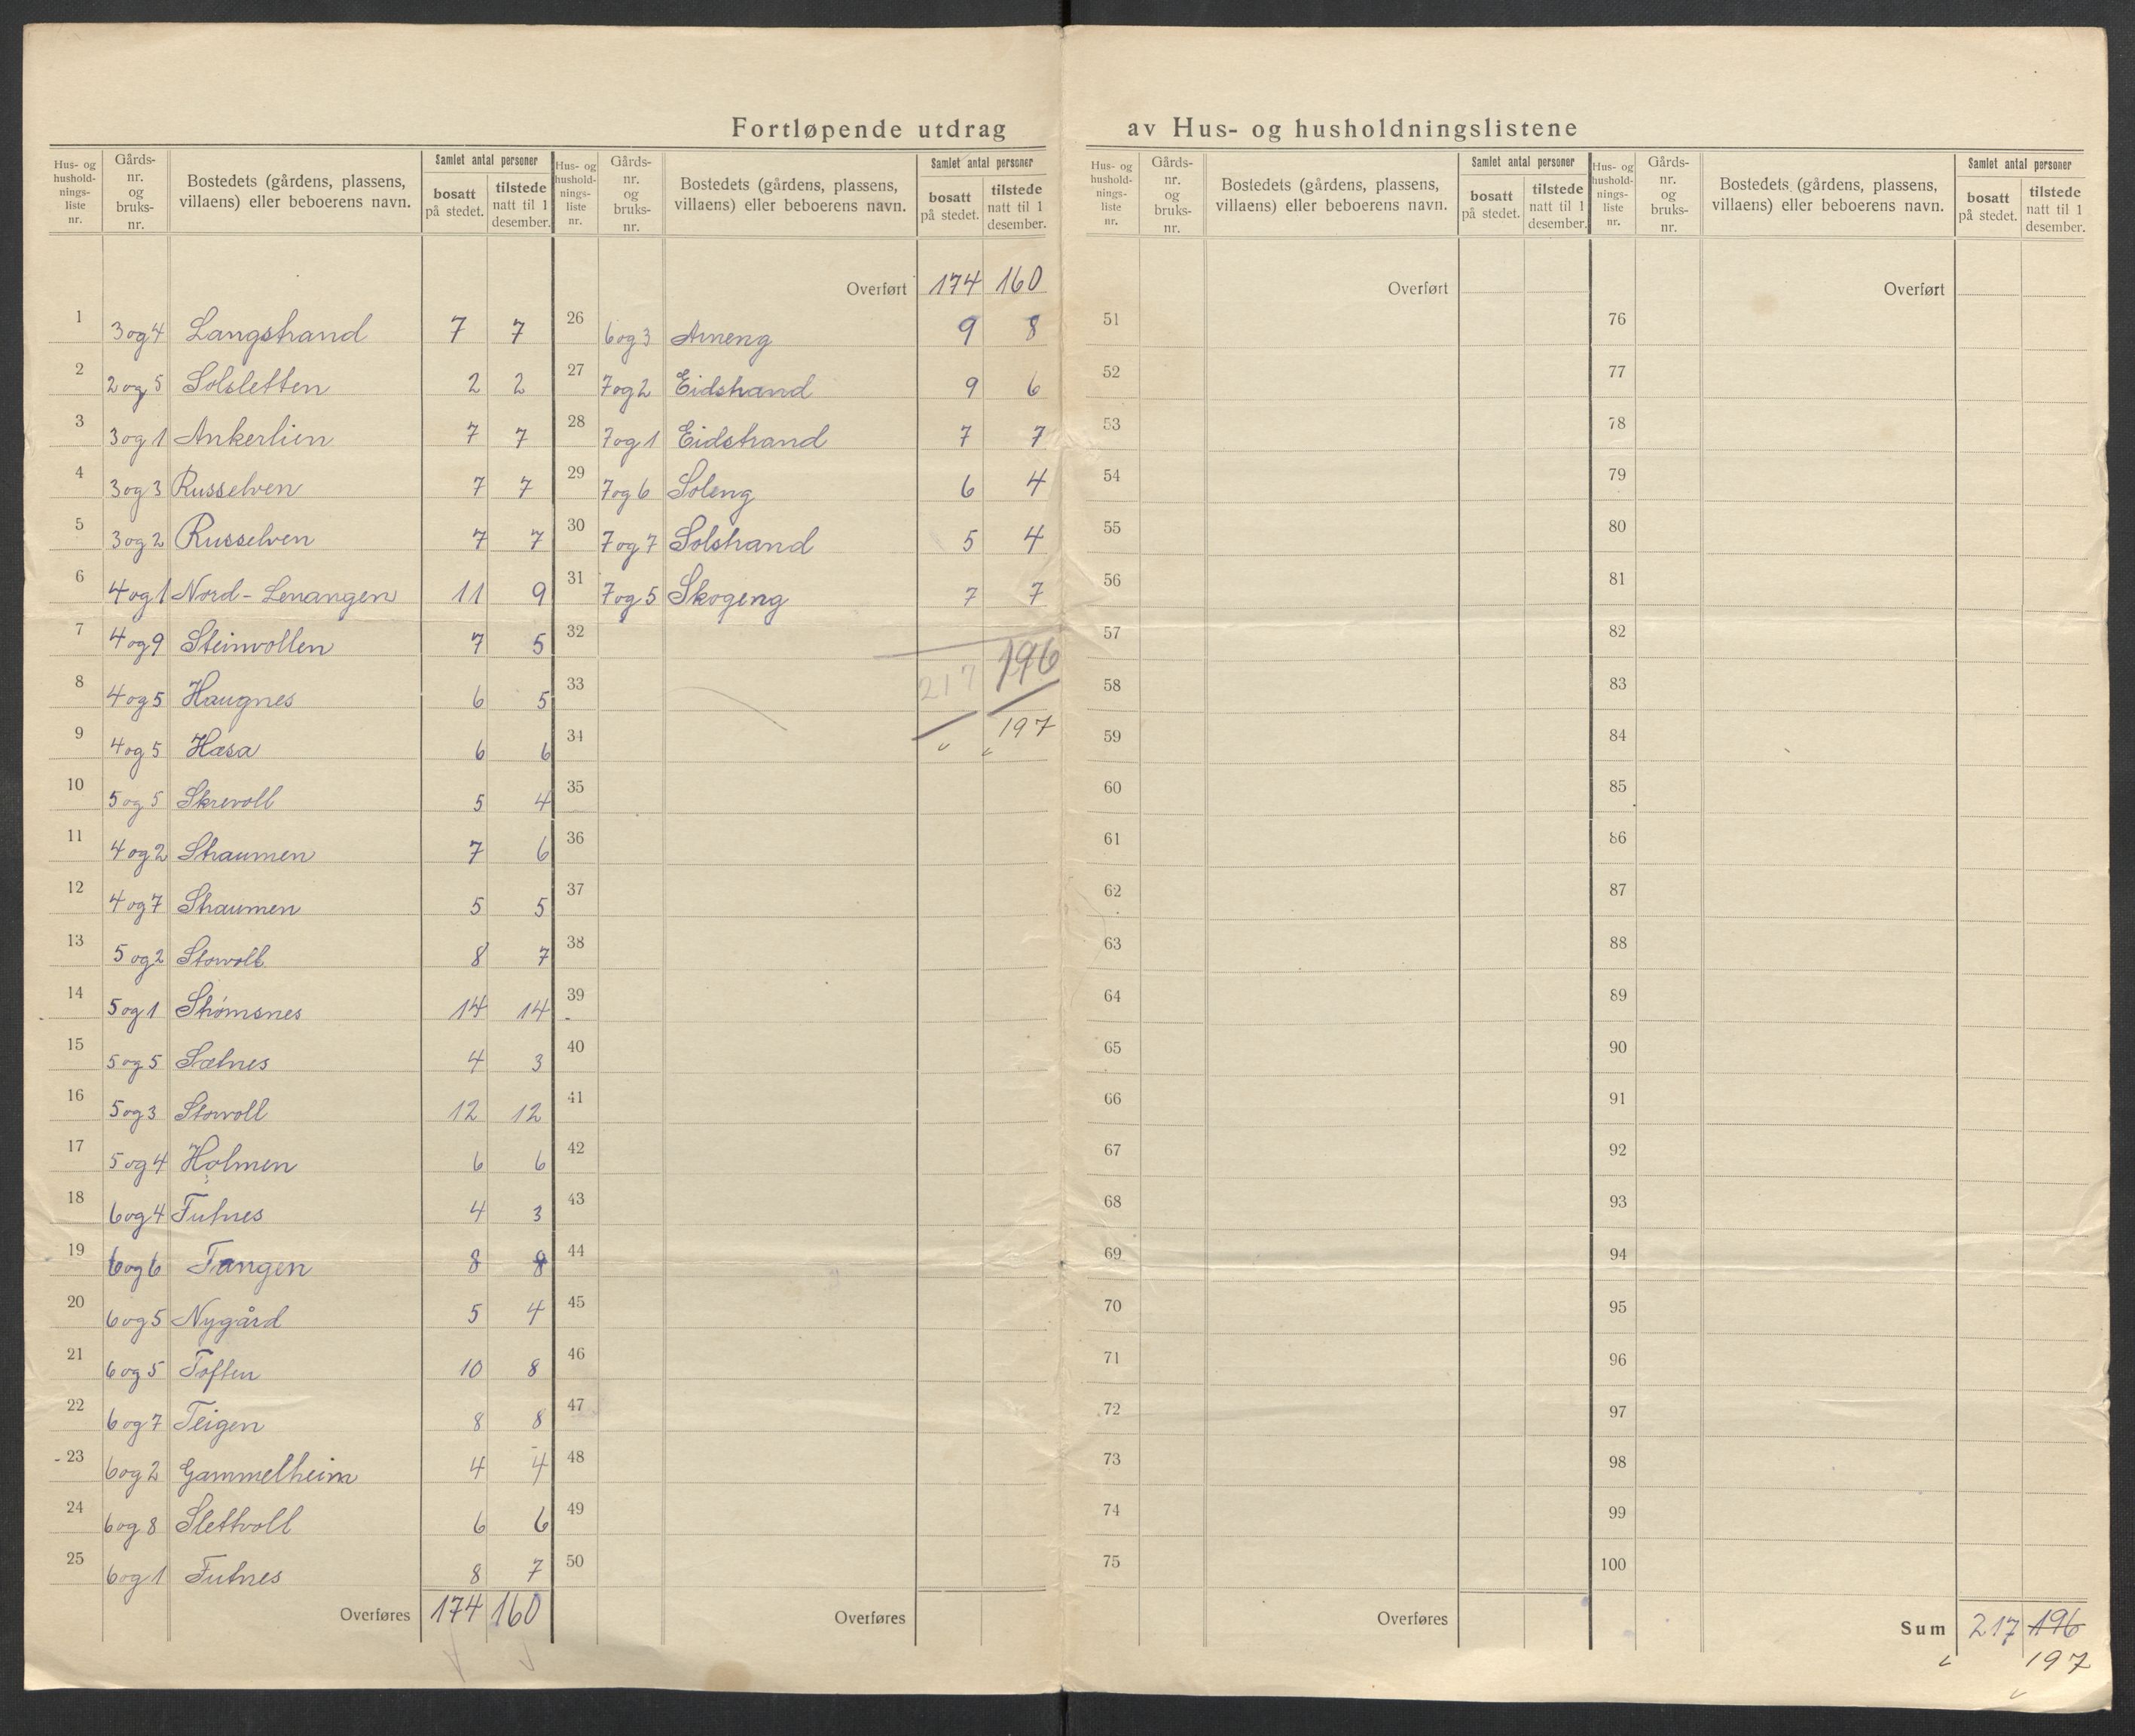 Fortløpende utdrag av Hus- og husholdningslistene
Hus- og hushold-nings-liste nr. | Gårds-nr. og bruks-nr. | Bostedets (gårdens, plassens, villaens) eller beboerens navn. | Samlet antal personer | bosatt på stedet. | tilstede natt til 1 desember.
1 3 og 4 Langstrand 7 7
2 2 og 5 Solsletten 2 2
3 3 og 1 Ankerlien 7 7
4 3 og 3 Russelven 7 7
5 3 og 2 Russelven 7 7
6 4 og 1 Nord-Lenangen 11 9
7 4 og 9 Steinvollen 7 5
8 4 og 5 Haugnes 6 5
9 4 og 5 Hasa 6 6
10 5 og 5 Skrevoll 5 4
11 4 og 2 Straumen 7 6
12 4 og 7 Straumen 5 5
13 5 og 2 Storvoll 8 7
14 5 og 1 Strømsnes 14 14
15 5 og 5 Sætnes 4 3
16 5 og 3 Storvoll 12 12
17 5 og 4 Holmen 6 6
18 6 og 4 Futnes 4 3
19 6 og 6 Tangen 8 8
20 6 og 5 Nygård 5 4
21 6 og 5 Toften 10 8
22 6 og 7 Teigen 8 8
23 6 og 2 Gammelheim 4 4
24 6 og 8 Slettvoll 6 6
25 6 og 1 Futnes 8 7
Overføres 174 160
Hus- og hushold-nings-liste nr. | Gårds-nr. og bruks-nr. | Bostedets (gårdens, plassens, villaens) eller beboerens navn. | Samlet antal personer | bosatt på stedet. | tilstede natt til 1 desember.
Overført 174 160
26 6 og 3 Ameng 9 8
27 7 og 2 Eidstrand 9 6
28 7 og 1 Eidstrand 7 7
29 7 og 6 Soleng 6 4
30 7 og 7 Solstrand 5 4
31 7 og 5 Skogeng 7 7
32
33 217 196
34 197
35
36
37
38
39
40
41
42
43
44
45
46
47
48
49
50
Overføres
Hus- og hushold-nings-liste nr. | Gårds-nr. og bruks-nr. | Bostedets (gårdens, plassens, villaens) eller beboerens navn. | Samlet antal personer | bosatt på stedet. | tilstede natt til 1 desember.
Overført
51
52
53
54
55
56
57
58
59
60
61
62
63
64
65
66
67
68
69
70
71
72
73
74
75
Overføres
Hus- og hushold-nings-liste nr. | Gårds-nr. og bruks-nr. | Bostedets (gårdens, plassens, villaens) eller beboerens navn. | Samlet antal personer | bosatt på stedet. | tilstede natt til 1 desember.
Overført
76
77
78
79
80
81
82
83
84
85
86
87
88
89
90
91
92
93
94
95
96
97
98
99
100
Sum 217 196
197